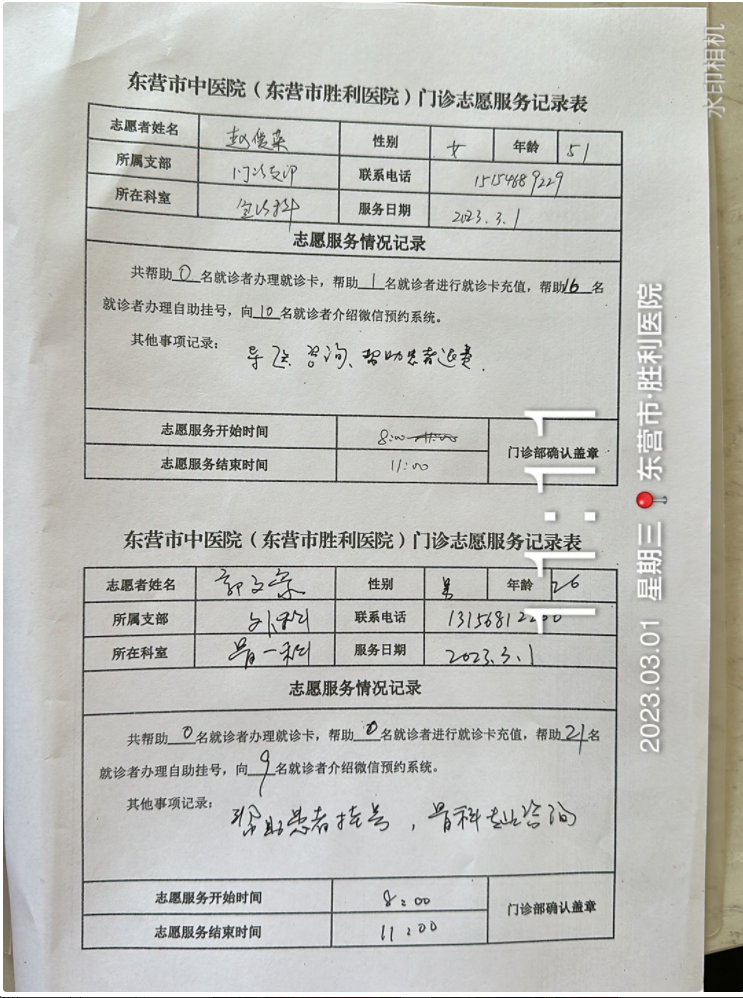 东营市中医院（东营市胜利医院）门诊志愿服务记录表
志愿者姓名 赵俊英 性别 女 年龄 51
所属支部 门诊支部 联系电话 15154689229
所在科室 服务日期 2023.3.1
志愿服务情况记录
共帮助 0 名就诊者办理就诊卡，帮助 1 名就诊者进行就诊卡充值，帮助 16 名
就诊者办理自助挂号，向 10 名就诊者介绍微信预约系统。
其他事项记录：
导医 咨询、帮助患者退费.
志愿服务开始时间 8:00
志愿服务结束时间 11:00
门诊部确认盖章
东营市中医院（东营市胜利医院）门诊志愿服务记录表
志愿者姓名 郭文宗 性别 男 年龄 26
所属支部 外科 联系电话
所在科室 骨一科 服务日期 2023.3.1
志愿服务情况记录
共帮助 0 名就诊者办理就诊卡，帮助 0 名就诊者进行就诊卡充值，帮助 21 名
就诊者办理自助挂号，向 9 名就诊者介绍微信预约系统。
其他事项记录：
帮助患者挂号，骨科专业咨询
志愿服务开始时间 8:00
志愿服务结束时间 11:00
门诊部确认盖章
11:11
2023.03.01 星期三 东营市·胜利医院
水印相机